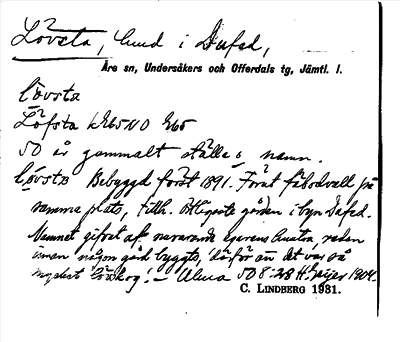 Lövsta, hmd i Dufed,
Åre sn, Undersåkers och Offerdals tg, Jämtl. l.
lövsta
Löfsta
SO är gammalt ställe o. namn.
Bebyggd först 1891. Förut fäbodvall på
samma plats, tillh. gården i byn Dufed.
Namnet gifvet af nuvarande egarens hustru, redan
innan någon gård byggts, därför att det var så
mycket löfskog! – SOB:28 H. Geijer 1904.
C. LINDBERG 1931.